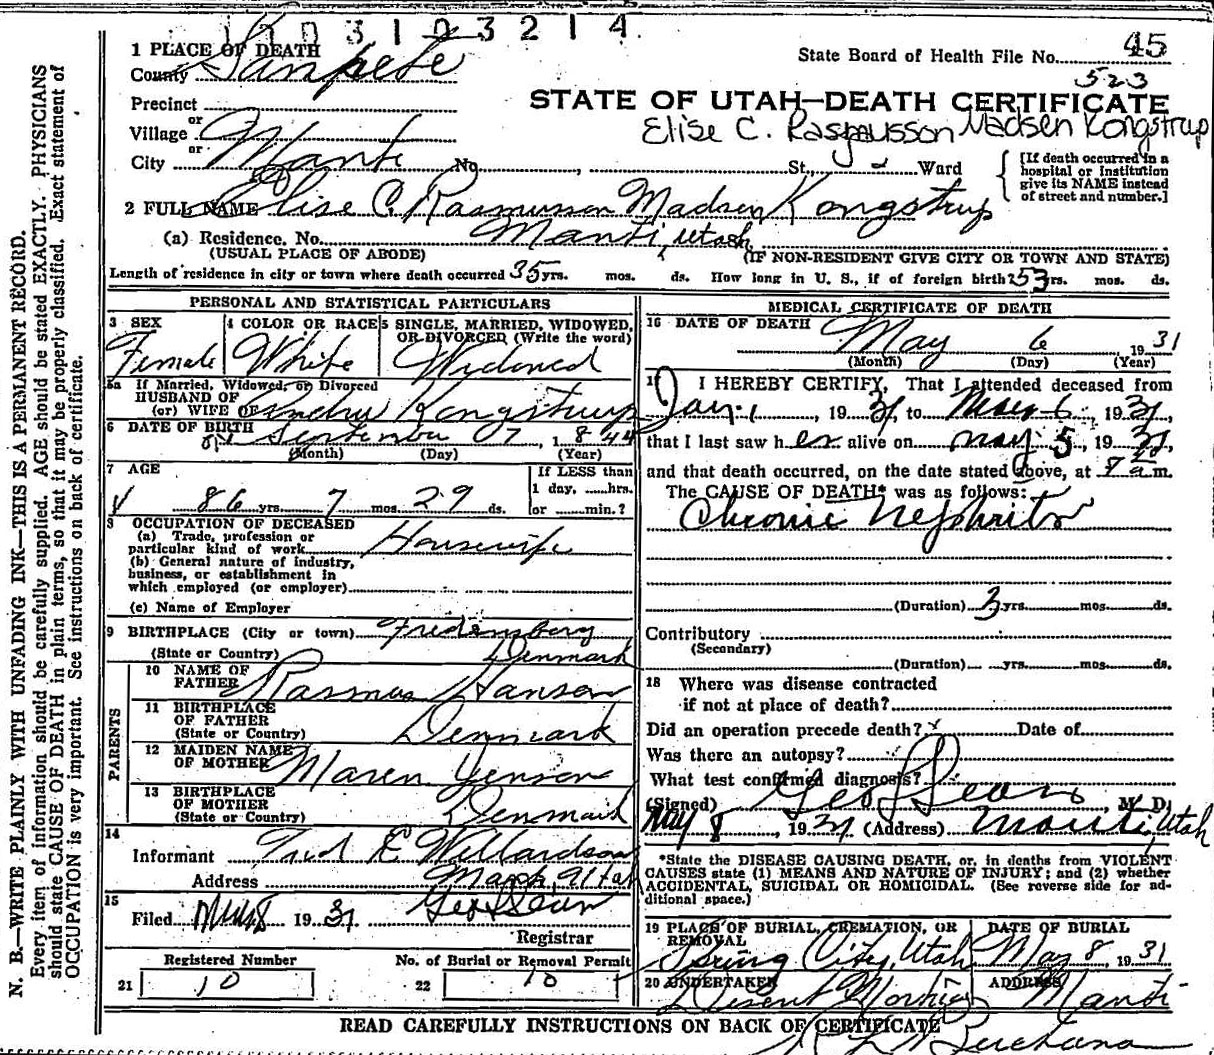 1103103214
State Board of Health File No. 45
523
1 PLACE OF DEATH
County Sanpete
STATE OF UTAH—DEATH CERTIFICATE
Elise C. Rasmusson Madsen Kongstrup
Precinct
or
Village
or
City Manti No. St., Ward
[If death occurred in a hospital or institution give its NAME instead of street and number.]
2 FULL NAME Elise C. Rasmussen Madsen Kongstrup
(a) Residence. No. Manti, Utah
(USUAL PLACE OF ABODE) (IF NON-RESIDENT GIVE CITY OR TOWN AND STATE)
Length of residence in city or town where death occurred 35 yrs. mos. ds. How long in U. S., if of foreign birth? 53 yrs. mos. ds.
PERSONAL AND STATISTICAL PARTICULARS
3 SEX
Female
4 COLOR OR RACE
White
5 SINGLE, MARRIED, WIDOWED,
OR DIVORCED (Write the word)
Widowed
5a If Married, Widowed, or Divorced
HUSBAND OF
(or) WIFE OF Kongstrup
6 DATE OF BIRTH September 07, 1844
(Month) (Day) (Year)
7 AGE
If LESS than
1 day, ......hrs.
or ......min.?
86 yrs. 7 mos. 29 ds.
8 OCCUPATION OF DECEASED
(a) Trade, profession or
particular kind of work Housewife
(b) General nature of industry,
business, or establishment in
which employed (or employer)
(c) Name of Employer
9 BIRTHPLACE (City or town) Fredensberg
(State or Country) Denmark
PARENTS
10 NAME OF
FATHER Rasmus Hansen
11 BIRTHPLACE
OF FATHER
(State or Country) Denmark
12 MAIDEN NAME
OF MOTHER Maren Jensen
13 BIRTHPLACE
OF MOTHER
(State or Country) Denmark
14
Informant Fred E Willardson
Address Utah
15
Filed May 8 1931 Geo L Sears
Registrar
Registered Number
21 10
No. of Burial or Removal Permit
22 10
MEDICAL CERTIFICATE OF DEATH
16 DATE OF DEATH
May 6 1931
(Month) (Day) (Year)
17 I HEREBY CERTIFY, That I attended deceased from
Jan. 1, 1931 to May 6, 1931,
that I last saw her alive on May 5, 1931,
and that death occurred, on the date stated above, at 8 a m.
The CAUSE OF DEATH* was as follows:
Chronic Nephritis
(Duration) 3 yrs. mos. ds.
Contributory
(Secondary)
(Duration) yrs. mos. ds.
18 Where was disease contracted
if not at place of death?
Did an operation precede death? Date of
Was there an autopsy?
What test confirmed diagnosis?
(Signed) Geo L Sears, M. D.
May 8, 1931 (Address) Manti, Utah
*State the DISEASE CAUSING DEATH, or, in deaths from VIOLENT
CAUSES state (1) MEANS AND NATURE OF INJURY; and (2) whether
ACCIDENTAL, SUICIDAL OR HOMICIDAL. (See reverse side for ad-
ditional space.)
19 PLACE OF BURIAL, CREMATION, OR
REMOVAL
Spring City, Utah
DATE OF BURIAL
May 8, 1931
20 UNDERTAKER
ADDRESS
Manti
READ CAREFULLY INSTRUCTIONS ON BACK OF CERTIFICATE
N. B.—WRITE PLAINLY WITH UNFADING INK—THIS IS A PERMANENT RECORD.
Every item of information should be carefully supplied. AGE should be stated EXACTLY. PHYSICIANS
should state CAUSE OF DEATH in plain terms, so that it may be properly classified. Exact statement of
OCCUPATION is very important. See instructions on back of certificate.